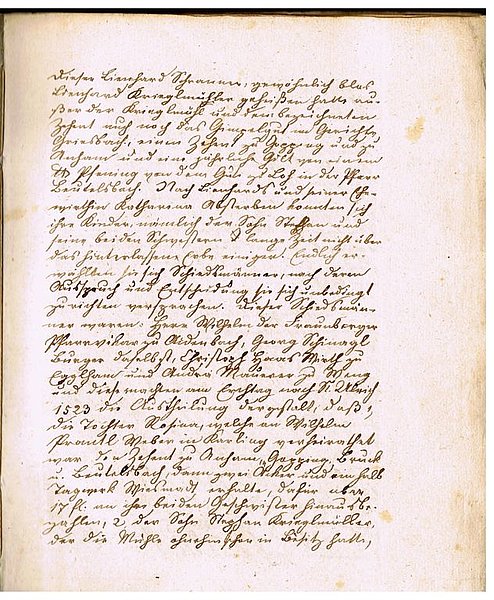 Dieser Lienhard Schramm, gewöhnlich blos
Lienhard Krieglmühler geheißen hatte au-
ßer der Krieglmühl und dem bezeichneten
Zehent auch noch das Gimpelgut im Gerichte
Griesbach, einen Zehent zu Gopping und zu
Anham und eine jährliche Gilt von einem
Pfening von dem Gut zu Loh in der Pfarr
Beutelsbach. Nach Lienhards und seiner Ehe-
wirthin Katharena Absterben konnten sich
ihre Kinder, nämlich der Sohn Stephan und
seine beiden Schwestern lange Zeit nicht über
das hinterlassene Erbe einigen. Endlich er-
wählten sie sich Schiedsmänner, nach deren
Ausspruch und Entscheidung sie sich unbedingt
zu richten versprachen. Dieser Schiedsmän-
ner waren: Herr Wilhelm der Fraunberger
Pfarrvikar zu Aidenbach, Georg Schinagl
Bürger daselbst, Christoph Haas Wirth zu
Egglham und Andrä Maurer zu
und diese machten am Erchtag nach St. Ulrich
1523 die Austheilung dergestalt, daß 1,
die Tochter Rosina, welche an Wilhelm
Prantl Weber in Karling verheirathet
war den Zehent zu Anham, Gopping, Bruck
u. Beutelsbach, dann zwei Äcker und ein halb
Tagwerk Wiesmadt erhalte, dafür aber
17 fl. an ihre beiden Geschwister hinausbe-
zahlen, 2, der Sohn Stephan Krieglmüller,
der die Mühle ohnehin schon in Besitz hatte,